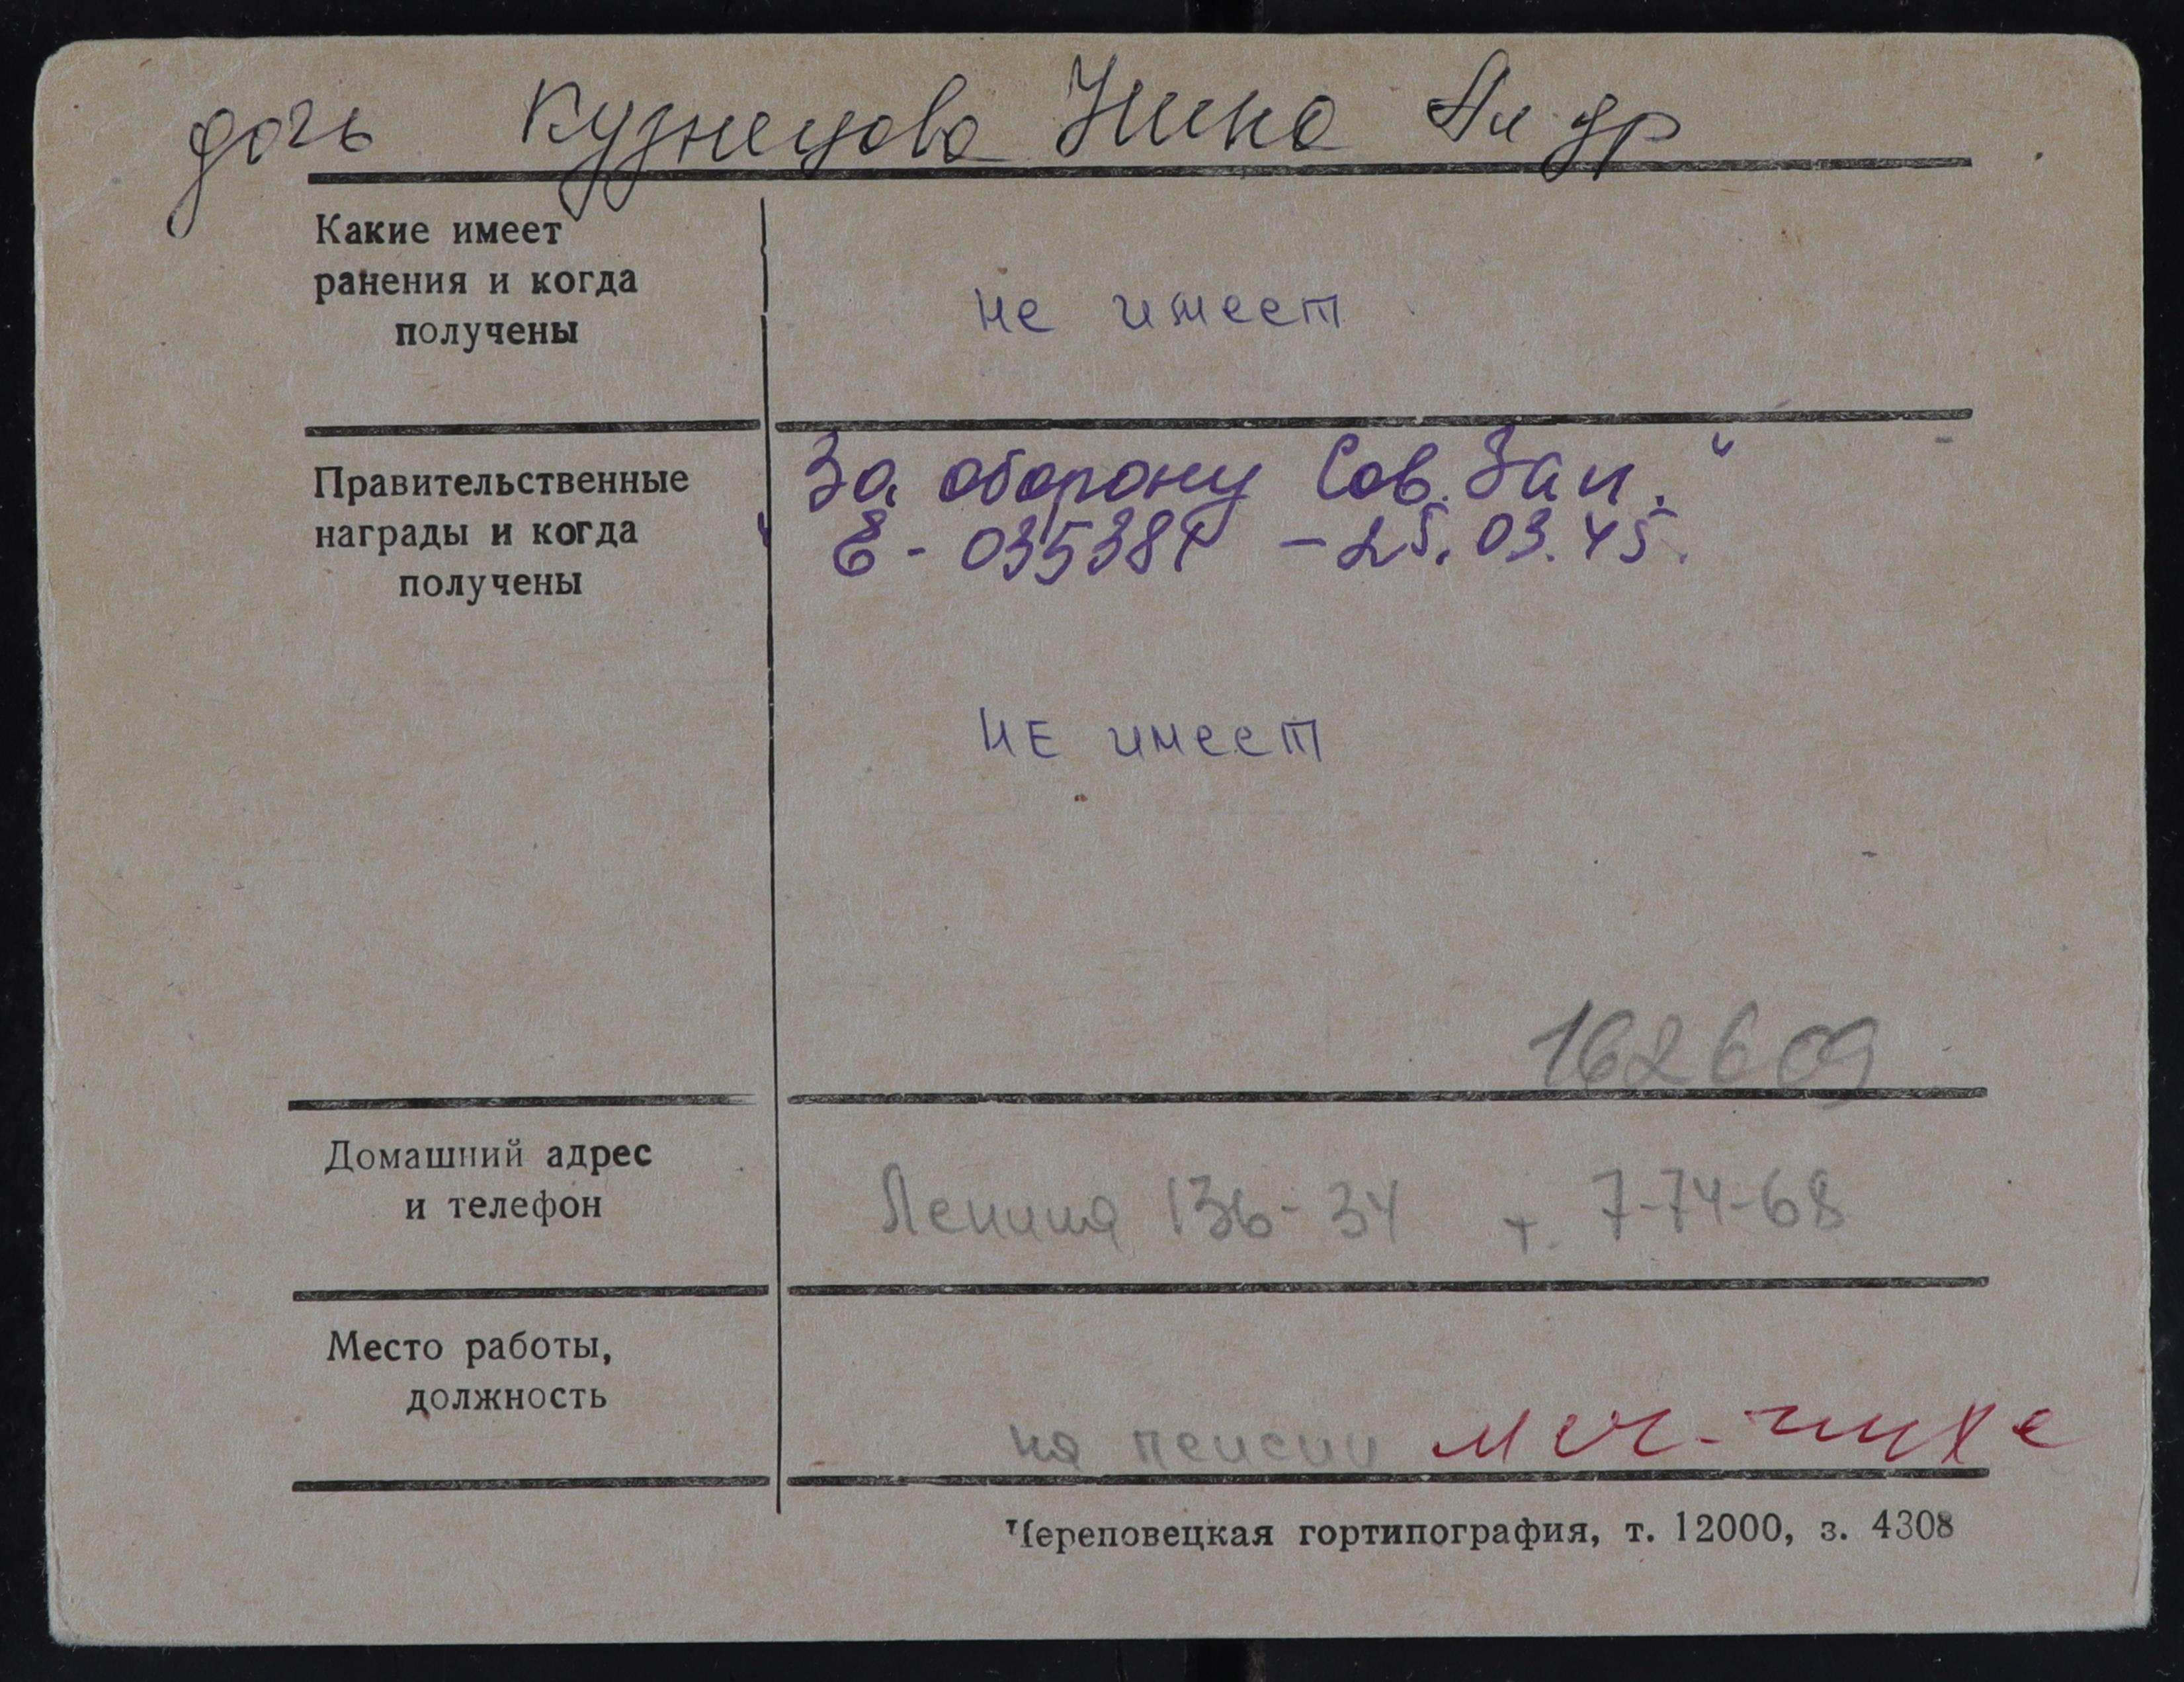 дочь Кузнецова Нина Ал-др
Какие имеет
ранения и когда
получены
не имеет
Правительственные
награды и когда
получены
„За оборону Сов. Зап.“
Е - 035381 - 25.03.45.
НЕ имеет
162609
Домашний адрес
и телефон
Ленина 136-34 т. 7-74-68
Место работы,
должность
на пенсии
Череповецкая гортипография, т. 12000, з. 4308